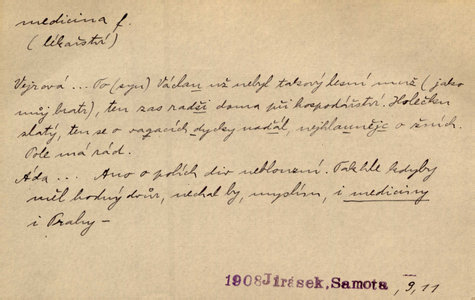 medicina f.
(lékařství)
Vejrová ... To (syn) Václav už nebyl takový lesní muž (jako
můj bratr), ten zas radši doma při hospodářství. Holečku
zlatý, ten se o vagacích dycky nadřál, nejhlaunějc o žních.
Pole má rád.
Ada .... Ano o polích div neblouzní. Takhle kdyby
měl hodný dvůr, nechal by, myslím, i medicíny
i Prahy —
1908 Jirásek, Samota, 9, 11